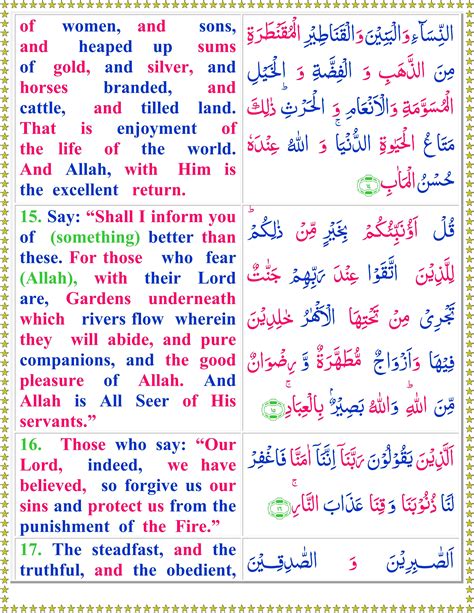 of women, and sons,
and heaped up sums
of gold, and silver, and
horses branded, and
cattle, and tilled land.
That is enjoyment of
the life of the world.
And Allah, with Him is
the excellent return.
النِّسَآءِ وَالۡبَنِيۡنَ وَالۡقَنَاطِيۡرِ الۡمُقَنۡطَرَةِ
مِنَ الذَّهَبِ وَ الۡفِضَّةِ وَ الۡخَيۡلِ
الۡمُسَوَّمَةِ وَالۡاَنۡعَامِ وَ الۡحَرۡثِ‌ؕ ذٰلِكَ
مَتَاعُ الۡحَيٰوةِ الدُّنۡيَا ۚ وَ اللّٰهُ عِنۡدَهٗ
حُسۡنُ الۡمَاٰبِ ﴿۱۴﴾
15. Say: “Shall I inform you
of (something) better than
these. For those who fear
(Allah), with their Lord
are, Gardens underneath
which rivers flow wherein
they will abide, and pure
companions, and the good
pleasure of Allah. And
Allah is All Seer of His
servants.”
قُلۡ اَؤُنَبِّئُكُمۡ بِخَيۡرٍ مِّنۡ ذٰ لِكُمۡ‌ؕ
لِلَّذِيۡنَ اتَّقَوۡا عِنۡدَ رَبِّهِمۡ جَنّٰتٌ
تَجۡرِىۡ مِنۡ تَحۡتِهَا الۡاَنۡهٰرُ خٰلِدِيۡنَ
فِيۡهَا وَاَزۡوَاجٌ مُّطَهَّرَةٌ وَّ رِضۡوَانٌ
مِّنَ اللّٰهِ‌ؕ وَاللّٰهُ بَصِيۡرٌۢ بِالۡعِبَادِ‌ۚ ﴿۱۵﴾
16. Those who say: “Our
Lord, indeed, we have
believed, so forgive us our
sins and protect us from the
punishment of the Fire.”
اَلَّذِيۡنَ يَقُوۡلُوۡنَ رَبَّنَاۤ اِنَّنَاۤ اٰمَنَّا فَاغۡفِرۡ
لَنَا ذُنُوۡبَنَا وَ قِنَا عَذَابَ النَّارِ‌ۚ ﴿۱۶﴾
17. The steadfast, and the
truthful, and the obedient,
اَلصّٰبِرِيۡنَ وَ الصّٰدِقِيۡنَ